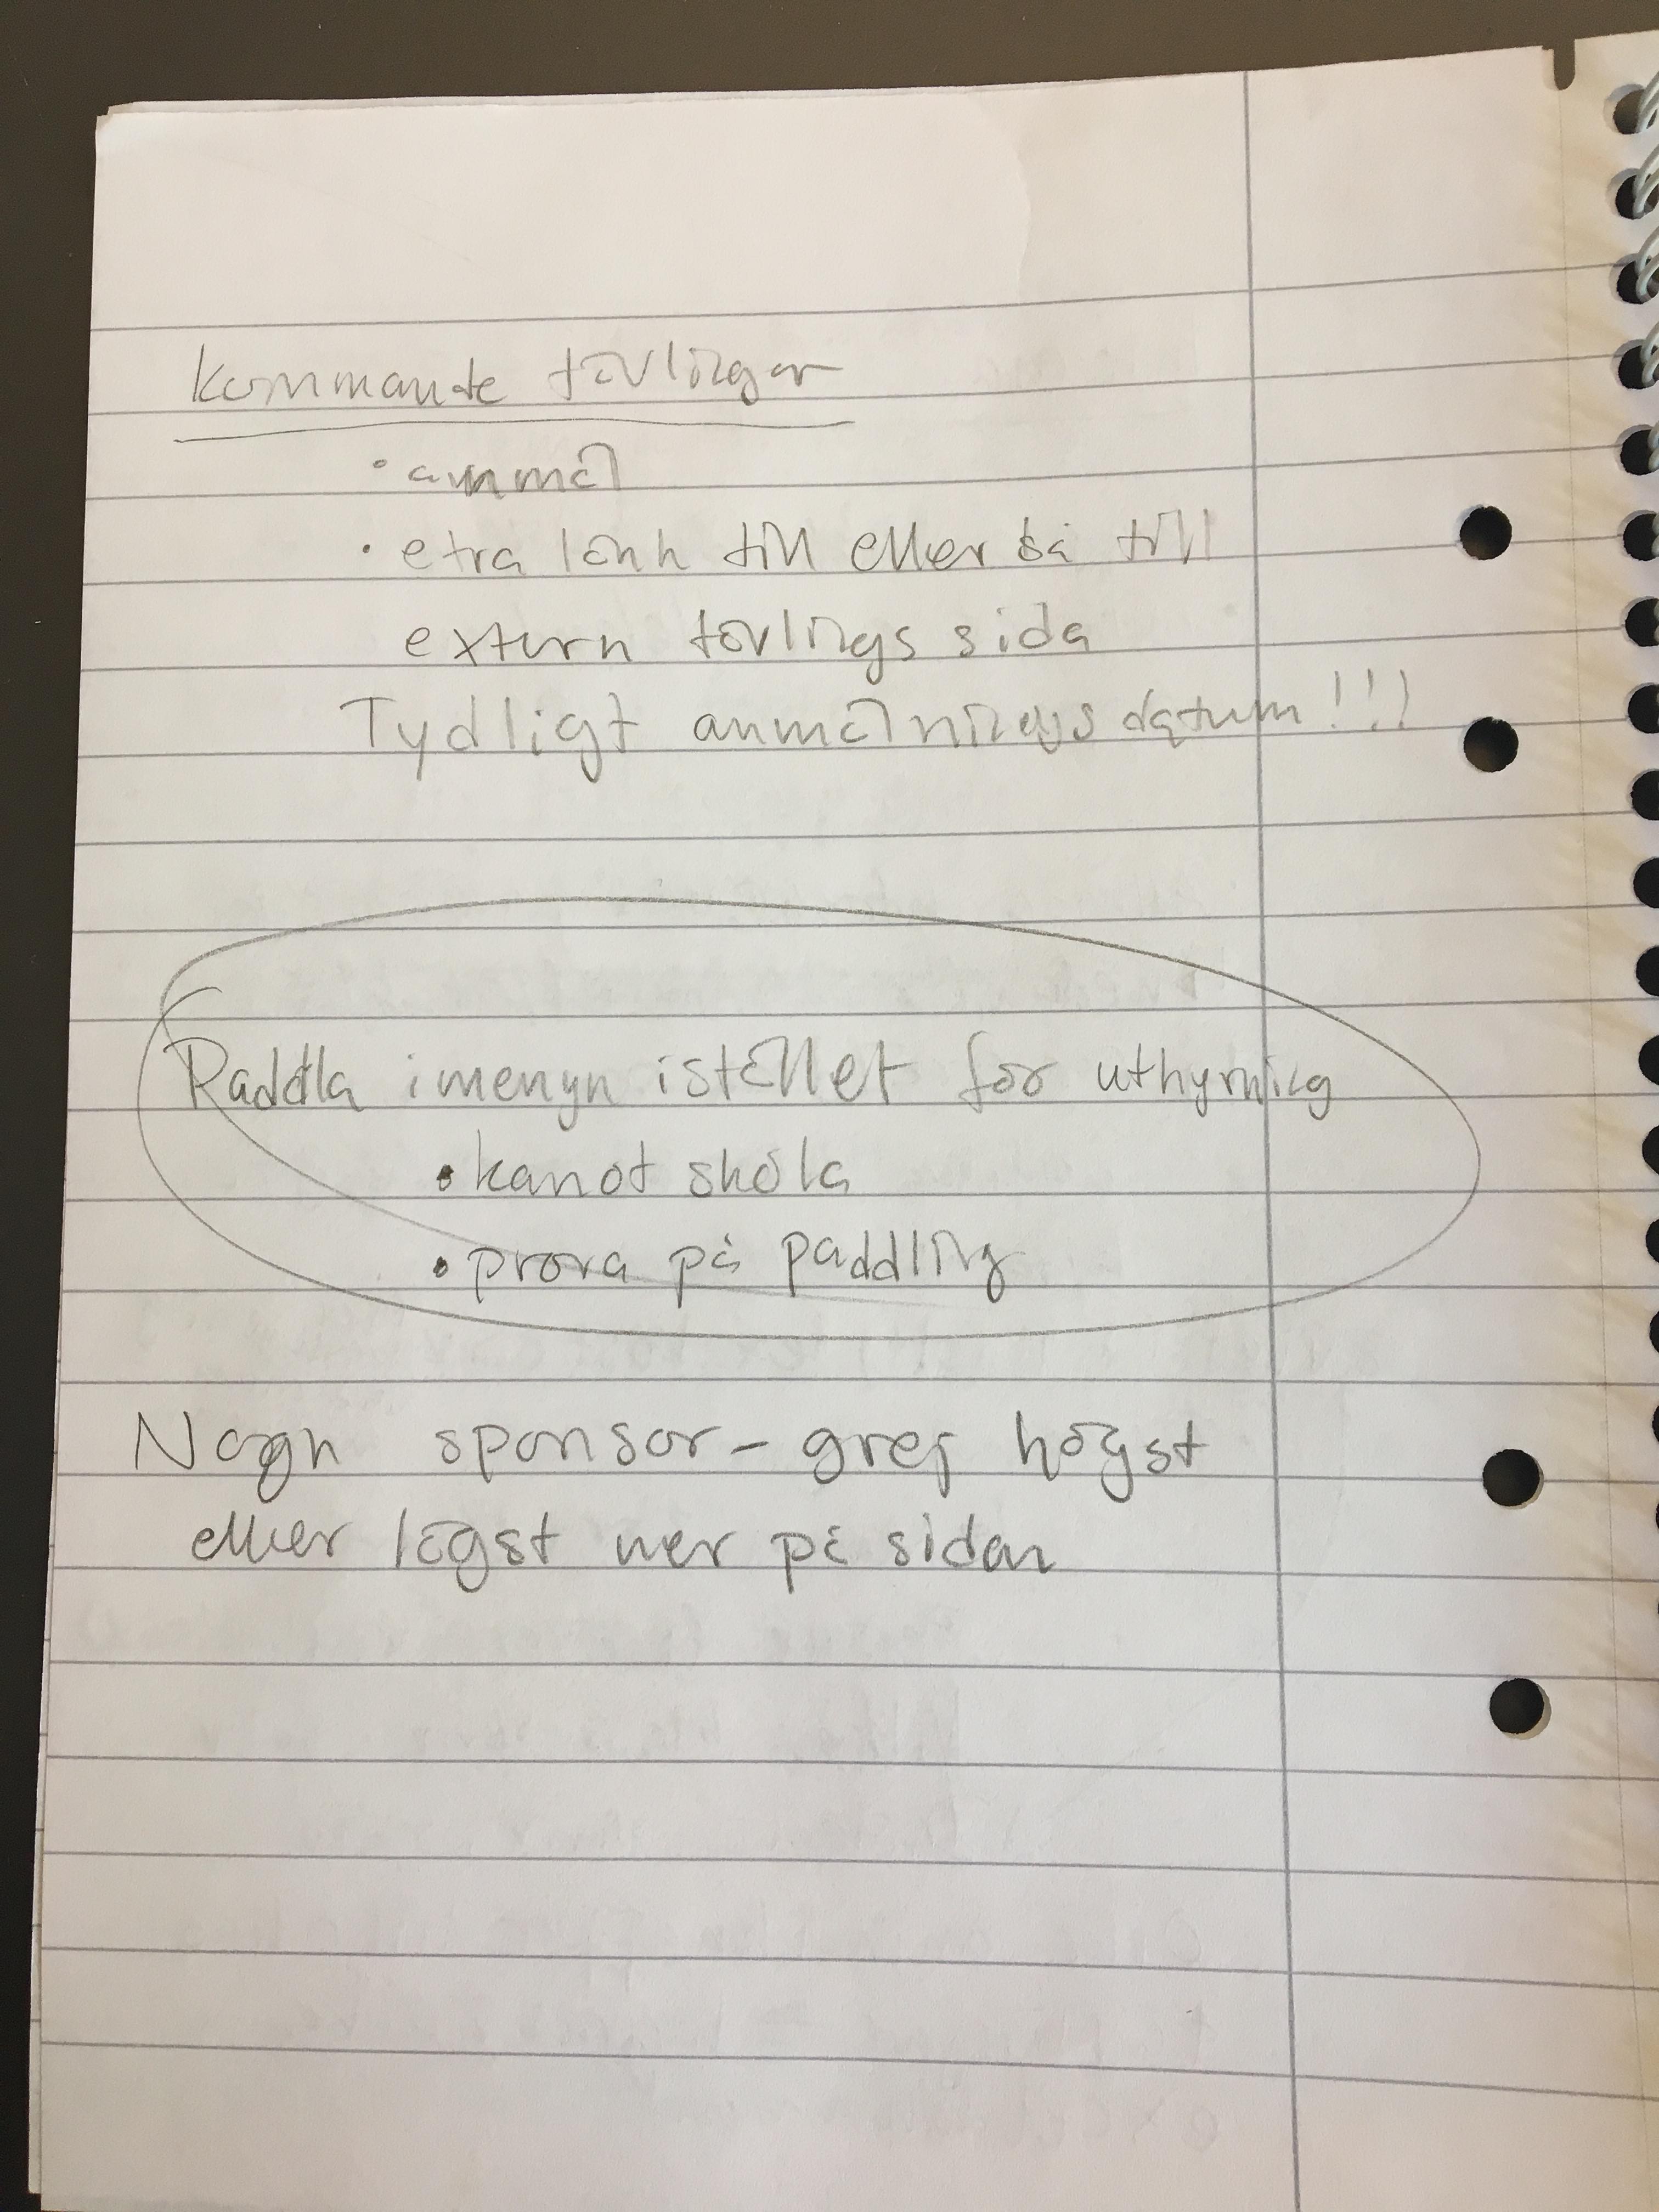 kommande tävlingar
• anmäl
• etra länk till eller så till
extern tävlings sida
Tydligt anmälningsdatum!!!
Paddla i menyn istället för uthyrning
• kanot skola
• prova på paddling
Nogn sponsor-grej högst
eller lägst ner på sidan